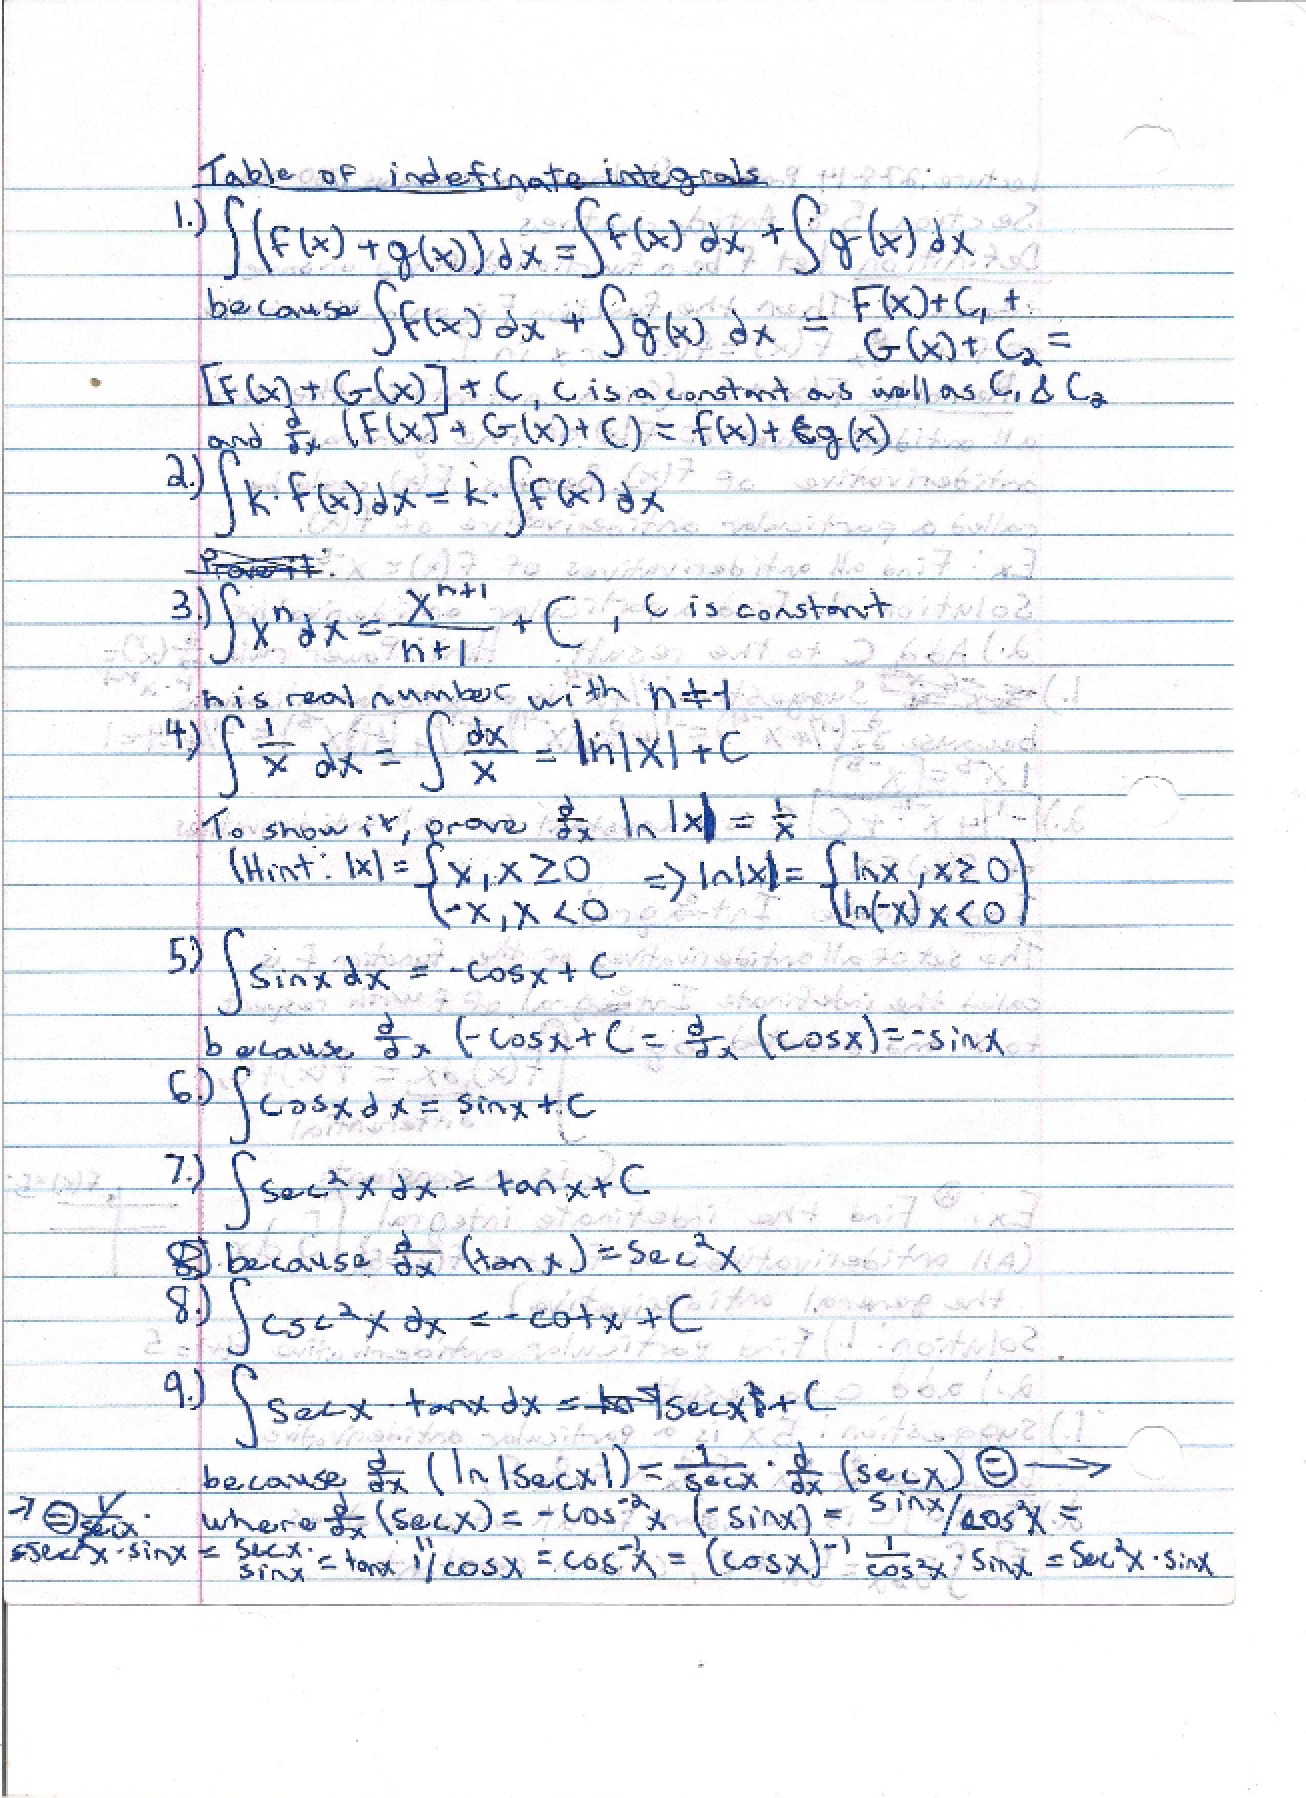 Table of indefinate integrals
1.) ∫(f(x) + g(x)) dx = ∫f(x) dx + ∫g(x) dx
because ∫f(x) dx + ∫g(x) dx = F(x) + C₁ +
G(x) + C₂ =
[F(x) + G(x)] + C, C is a constant as well as C₁ & C₂
and d/dx (F(x) + G(x) + C) = f(x) + g(x)
2.) ∫k·f(x) dx = k·∫f(x) dx
Prove it:
3.) ∫xⁿ dx = xⁿ⁺¹/n+1 + C, C is constant
n is real number with n ≠ -1
4.) ∫ 1/x dx = ∫ dx/x = ln|x| + C
To show it, prove d/dx ln|x| = 1/x
(Hint: |x| = { x, x ≥ 0 ⇒ ln|x| = { ln x, x ≥ 0
-x, x < 0 ln(-x) x < 0 )
5.) ∫sinx dx = -cosx + C
because d/dx (-cosx + C = d/dx (cosx) = -sinx
6.) ∫cosx dx = sinx + C
7.) ∫sec²x dx = tanx + C
because d/dx (tanx) = sec²x
8.) ∫csc²x dx = -cotx + C
9.) ∫secx · tanx dx = secx + C
because d/dx (ln|secx|) = 1/secx · d/dx (secx) ⊜ →
→ ⊜ 1/secx · where d/dx (secx) = -cos⁻²x (-sinx) = sinx/cos²x =
sec²x · sinx = secx · sinx = tanx 1/cosx = cos⁻¹x = (cosx)⁻¹ 1/cos²x · sinx = sec²x · sinx